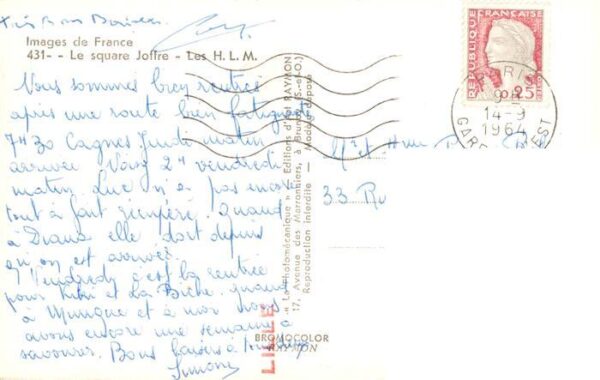 Images de France
431-- Le square Joffre - Les H. L. M.
Nous sommes bien rentrés
après une route bien fatigante
7H30 Cagnes Jeudi matin
arrivée Vanq 2H vendredi
matin. Luc n'a pas encore
tout à fait récupéré. Quand
à Diana elle dort depuis
qu'on est arrivés.
Vendredi c'est la rentrée
pour Kiki et La Biche. Quand
à Munique et à moi nous
avons encore une semaine à
savourer. Bons baisers à
Simone
« La Photomécanique » - Editions d'Art RAYMON
17, Avenue des Marronniers, à Brunoy (S.-et-O.)
Reproduction interdite — Modèle déposé
BROMOCOLOR
RAYMON
REPUBLIQUE
FRANÇAISE
0,25
PARIS
14-9
1964
GARE
EST
33 Ru